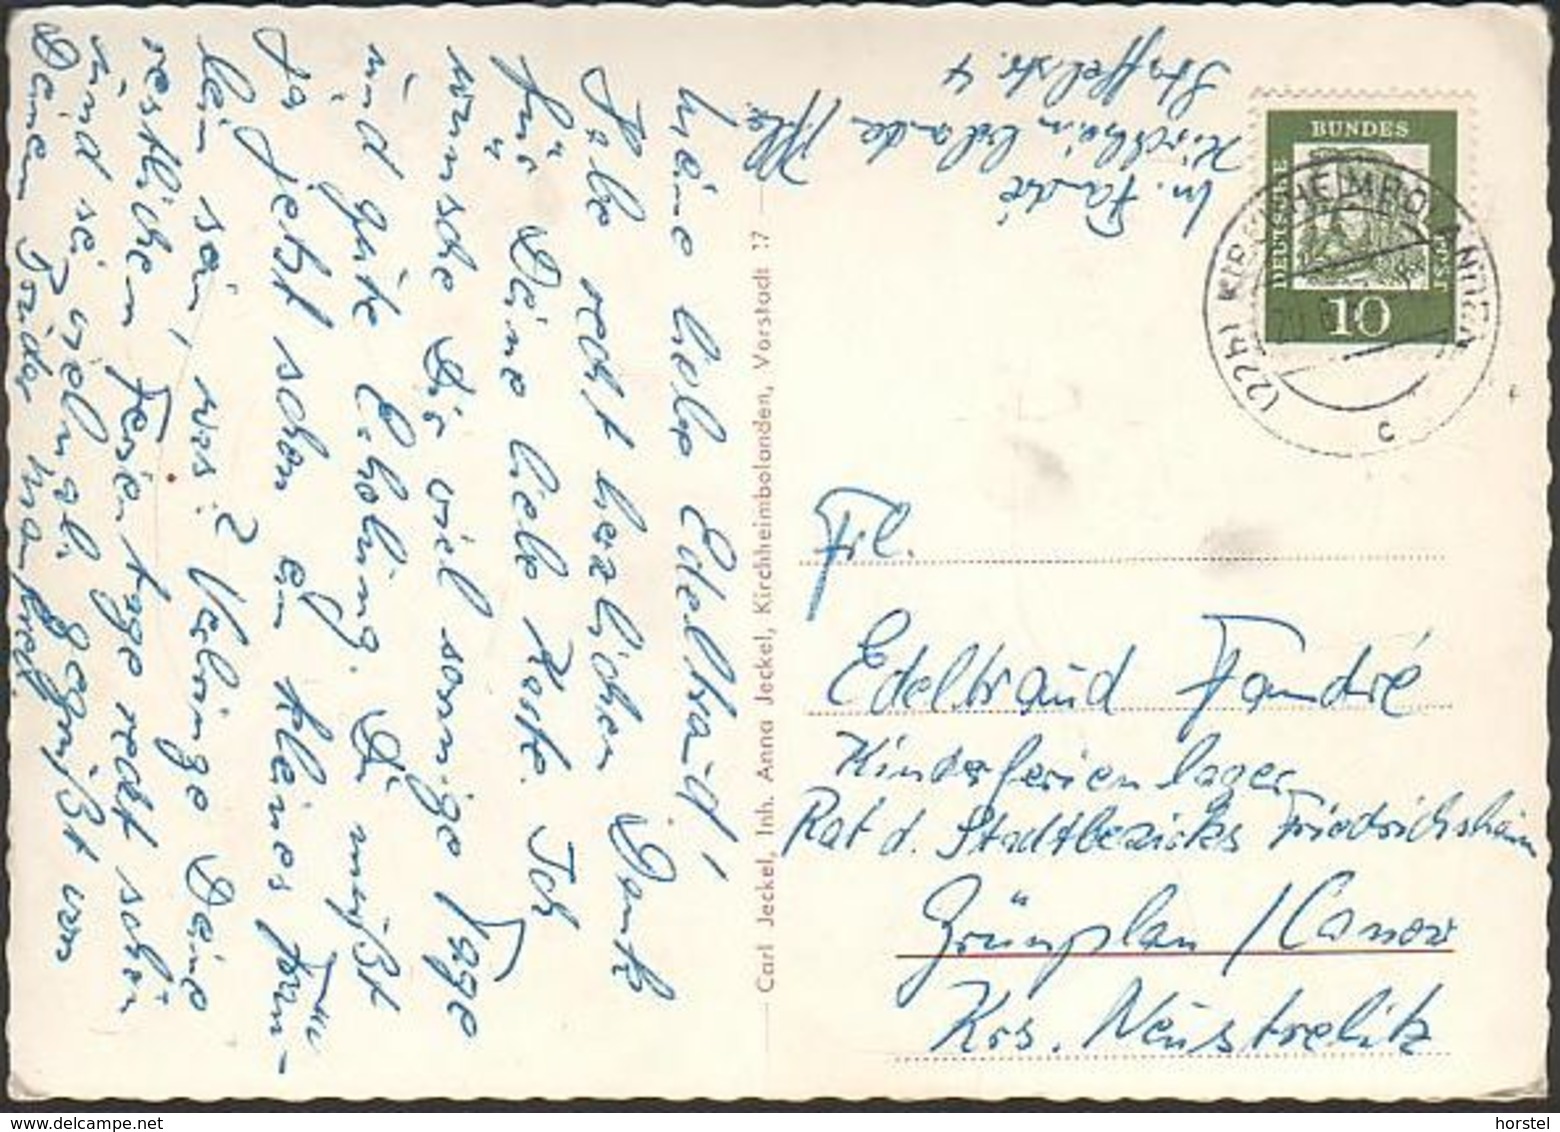 Meine liebe Edeltraud!
Habe recht herzlichen Dank
für Deine liebe Karte. Ich
wünsche Dir viel sonnige Tage
und gute Erholung. Du mußt
ja jetzt schon ein kleines Fräu-
lein sein, was? Verbringe Deine
restlichen Ferientage recht schön
und sei vielmals gegrüßt von
Deinem Bruder Manfred.
Carl Jeckel, Inh. Anna Jeckel, Kirchheimbolanden, Vorstadt 17
M. Fandré
Kirchheimbolanden /Pfalz
Staffelstr. 4
DEUTSCHE
BUNDES
POST
10
(22b) KIRCHHEIMBOLANDEN
c
Frl.
Edeltraud Fandré
Kinderferienlager
Rat d. Stadtbezirks Friedrichshain
Grünplan / Canow
Krs. Neustrelitz
horstel